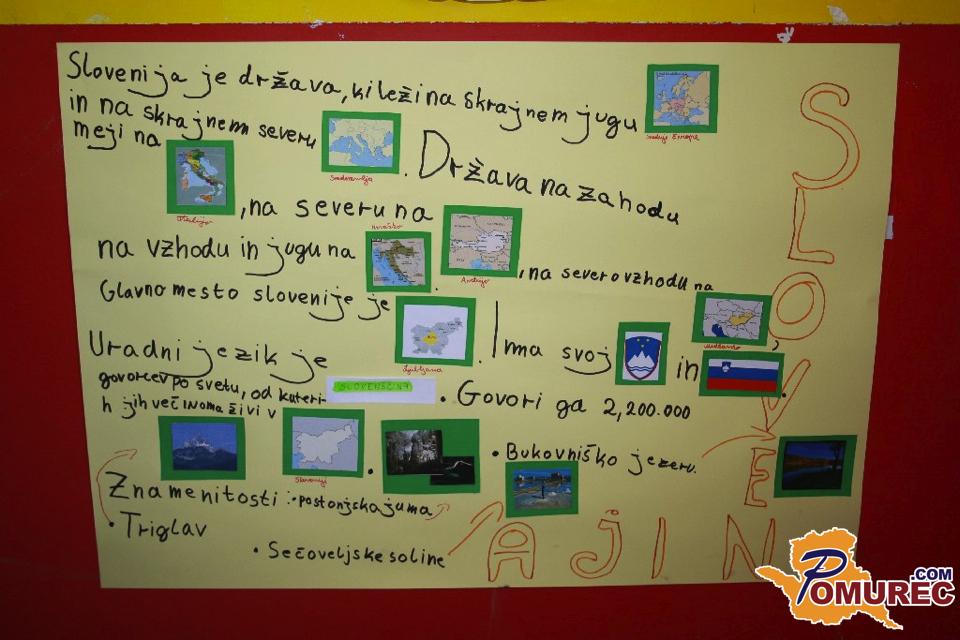 Slovenija je država, ki leži na skrajnem jugu
Srednje Evrope
in na skrajnem severu
Sredozemlja
. Država na zahodu
meji na
Italijo
, na severu na
Avstrijo
, na severovzhodu na
Madžarsko
,
na vzhodu in jugu na
Hrvaško
.
Glavno mesto slovenije je
Ljubljana
. Ima svoj
in
.
Uradni jezik je
SLOVENŠČINA
. Govori ga 2,200.000
govorcev po svetu, od kateri-
h jih večinoma živi v
Sloveniji
.
Znamenitosti:
• postonjska jama
• Bukovniško jezero.
• Triglav
• Sečoveljske soline
SLOVENIJA
POMUREC
.COM